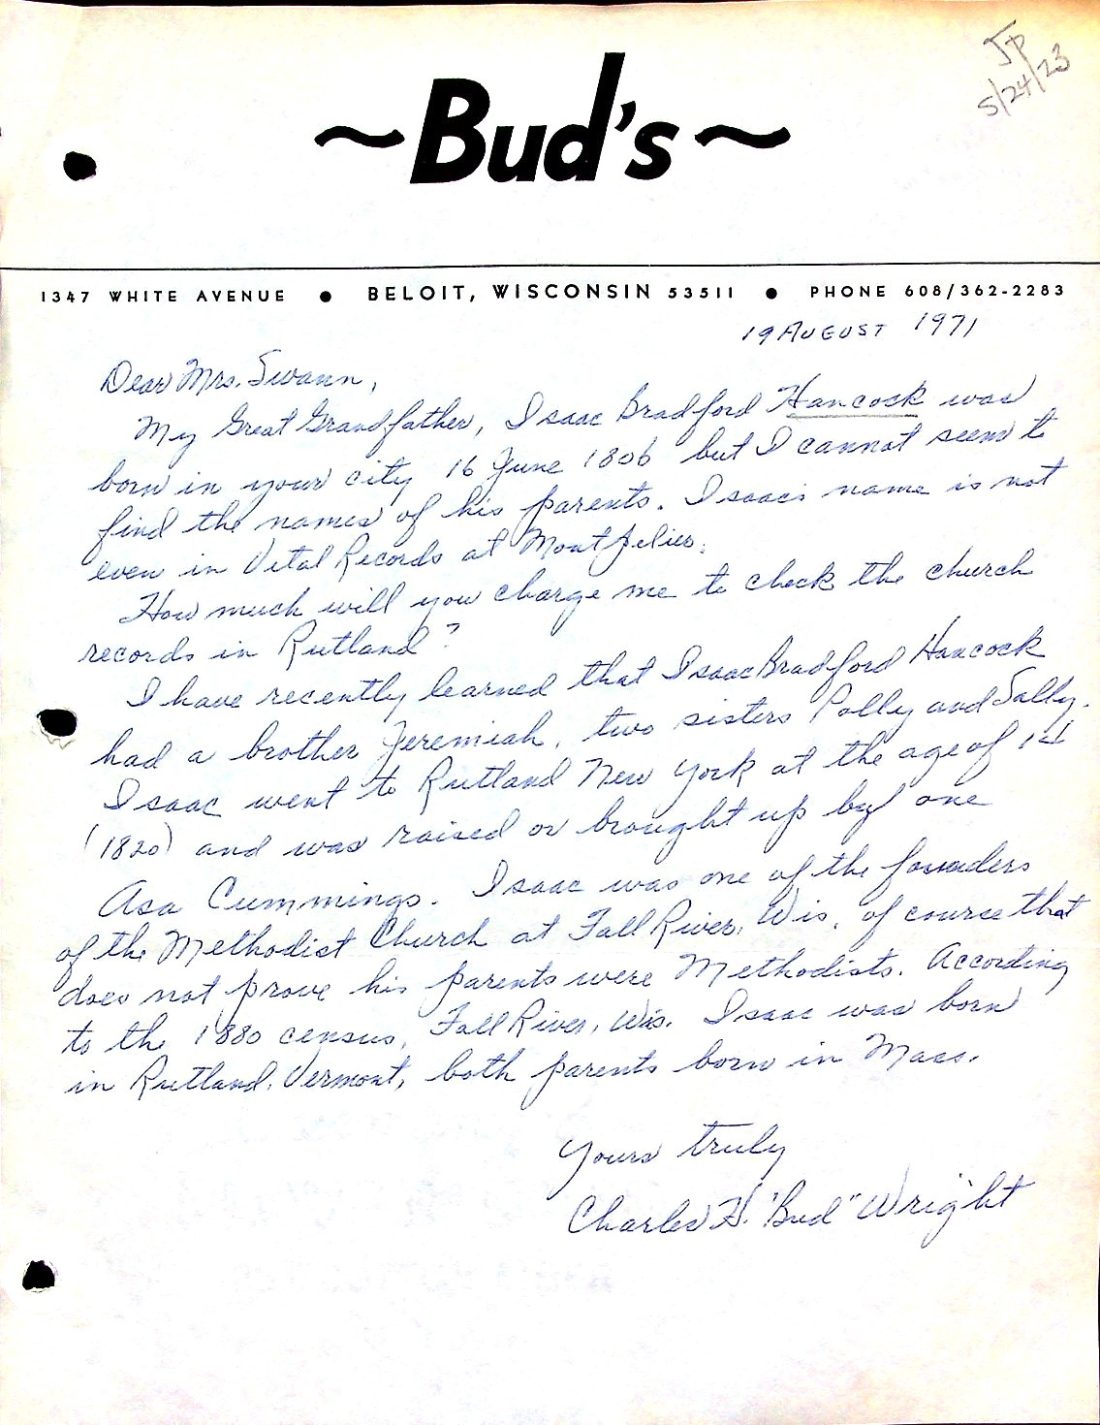 JP
5/24/23
~Bud's~
1347 WHITE AVENUE • BELOIT, WISCONSIN 53511 • PHONE 608/362-2283
19 AUGUST 1971
Dear Mrs. Swann,
My Great Grandfather, Isaac Bradford Hancock was
born in your city 16 June 1806 but I cannot seem to
find the names of his parents. Isaac's name is not
even in Vital Records at Montpelier.
How much will you charge me to check the church
records in Rutland?
I have recently learned that Isaac Bradford Hancock
had a brother Jeremiah, two sisters Polly and Sally.
Isaac went to Rutland New York at the age of 14
(1820) and was raised or brought up by one
Asa Cummings. Isaac was one of the founders
of the Methodist Church at Fall River, Wis, of course that
does not prove his parents were Methodists. According
to the 1880 census, Fall River, Wis. Isaac was born
in Rutland, Vermont, both parents born in Mass.
Yours truly
Charles H. "Bud" Wright